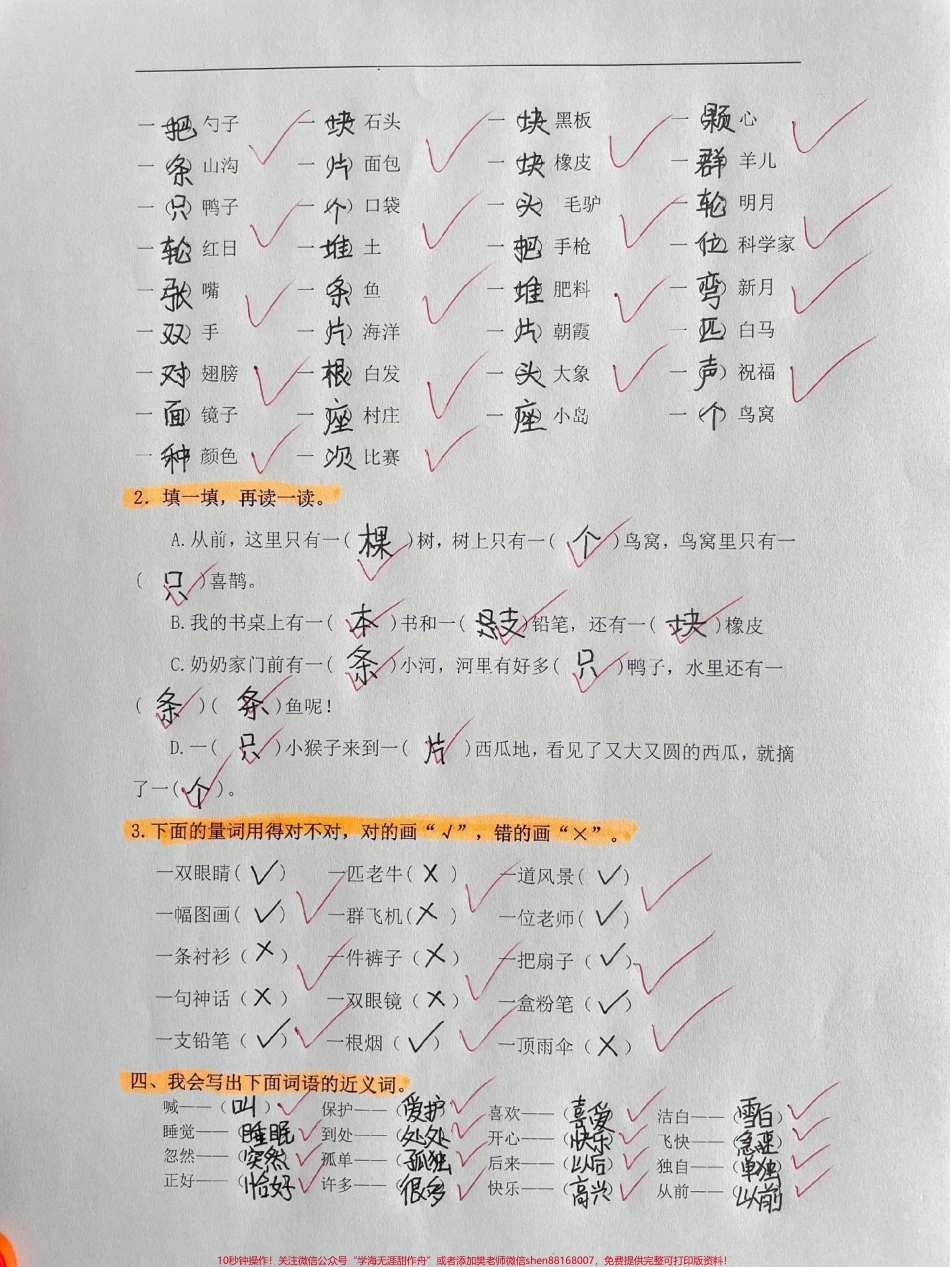 一(把)勺子 一(块)石头 一(块)黑板 一(颗)心
一(条)山沟 一(片)面包 一(块)橡皮 一(群)羊儿
一(只)鸭子 一(个)口袋 一(头)毛驴 一(轮)明月
一(轮)红日 一(堆)土 一(把)手枪 一(位)科学家
一(张)嘴 一(条)鱼 一(堆)肥料 一(弯)新月
一(双)手 一(片)海洋 一(片)朝霞 一(匹)白马
一(对)翅膀 一(根)白发 一(头)大象 一(声)祝福
一(面)镜子 一(座)村庄 一(座)小岛 一(个)鸟窝
一(种)颜色 一(次)比赛
2. 填一填，再读一读。
A.从前，这里只有一(棵)树，树上只有一(个)鸟窝，鸟窝里只有一
(只)喜鹊。
B.我的书桌上有一(本)书和一(支)铅笔，还有一(块)橡皮
C.奶奶家门前有一(条)小河，河里有好多(只)鸭子，水里还有一
(条)(条)鱼呢!
D.一(只)小猴子来到一(片)西瓜地，看见了又大又圆的西瓜，就摘
了一(个)。
3.下面的量词用得对不对，对的画“√”，错的画“×”。
一双眼睛(√) 一匹老牛(×) 一道风景(√)
一幅图画(√) 一群飞机(×) 一位老师(√)
一条衬衫(×) 一件裤子(×) 一把扇子(√)
一句神话(×) 一双眼镜(×) 一盒粉笔(√)
一支铅笔(√) 一根烟(√) 一顶雨伞(×)
四、我会写出下面词语的近义词。
喊——(叫) 保护——(爱护) 喜欢——(喜爱) 洁白——(雪白)
睡觉——(睡眠) 到处——(处处) 开心——(快乐) 飞快——(急速)
忽然——(突然) 孤单——(孤独) 后来——(以后) 独自——(单独)
正好——(恰好) 许多——(很多) 快乐——(高兴) 从前——(以前)
10秒钟操作！关注微信公众号“学海无涯甜作舟”或者添加樊老师微信shen88168007，免费提供完整可打印版资料！